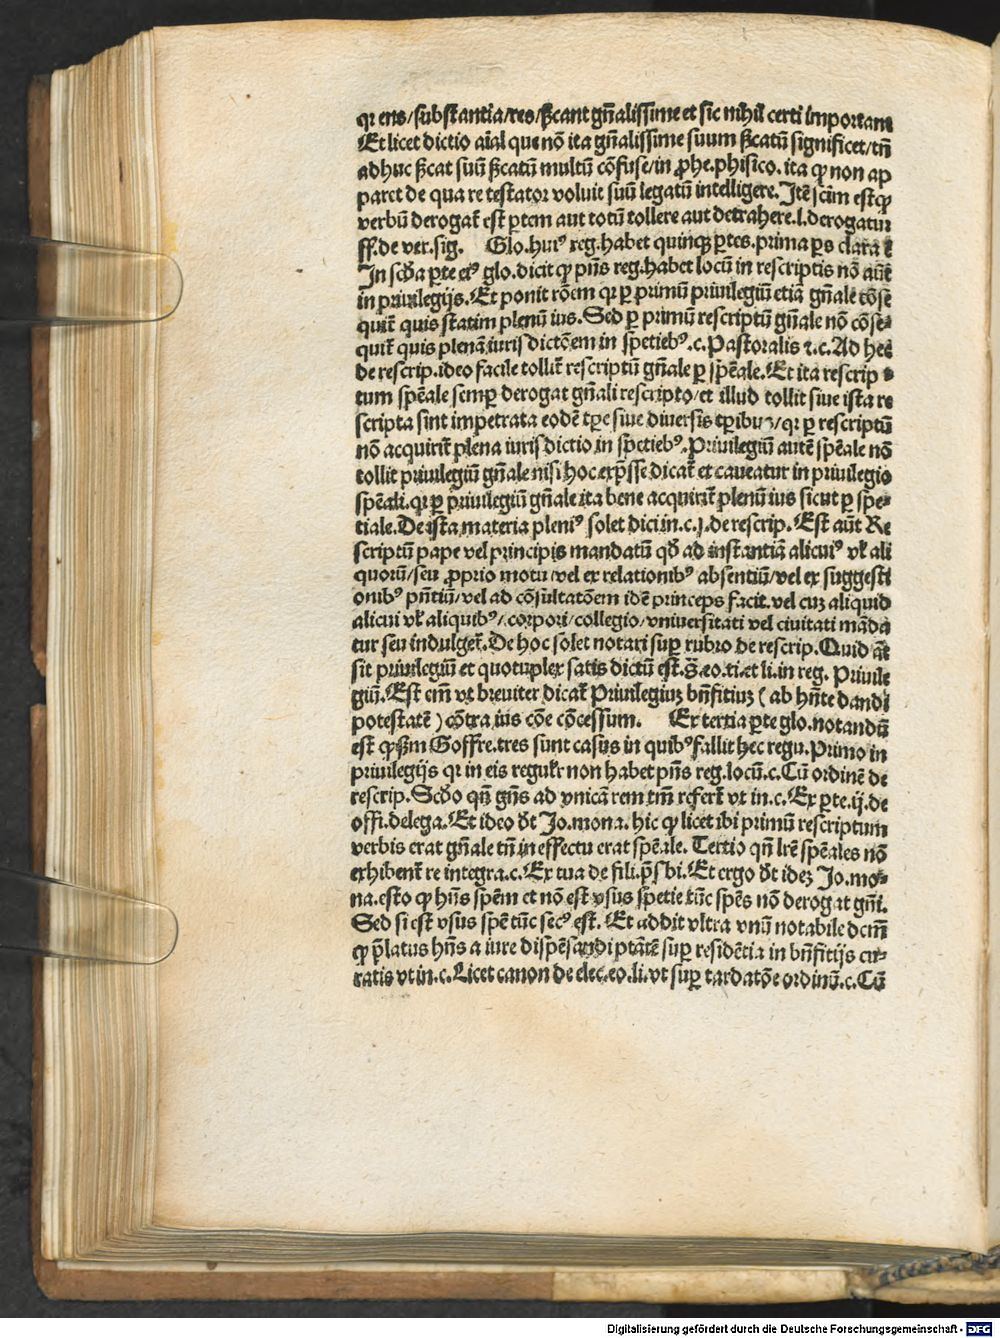 qr ens/substantia/res/ẞcant gñalissime et sic nihil certi important
Et licet dictio aīal que nō ita gñalissime suum ẞcatū significet/tñ
adhuc ẞcat suū ẞcatū multū cōfuse/in ꝓhe.phisico. ita ꝙ non ap
paret de qua re testator voluit suū legatū intelligere. Itē sciīm est ꝙ
verbū derogat̄ est ꝑtem aut totū tollere aut detrahere.l.derogatur
ff.de ver.sig. Glo.huiꝰ reg.habet quinqꝫ ꝑtes.prima ꝑs clara ē
In scd̄a ꝑte eiꝰ glo.dicit ꝙ pn̄s reg.habet locū in rescriptis nō aūt
in priuilegijs. Et ponit rōem qr ꝑ primū priuilegiū etiā gñale cōse
quit̄ quis statim plenū ius. Sed ꝑ primū rescriptū gñale nō cōse⸗
quit̄ quis plenā iurisdictōem in spetiebꝰ.c.Pastoralis ⁊.c.Ad hec
de rescrip.ideo facile tollit̄ rescriptū gñale ꝑ spēale. Et ita rescrip
tum spēale semꝑ derogat gñali rescripto/et illud tollit siue ista re
scripta sint impetrata eodē tꝑe siue diuersis tꝑibus/qr ꝑ rescriptū
nō acquirit̄ plena iurisdictio in spetiebꝰ. Priuilegiū autē spēale nō
tollit priuilegiū gñale nisi hoc exp̄sse dicat̄ et caueatur in priuilegio
spēali.qr ꝑ priuilegiū gñale ita bene acquirit̄ plenū ius sicut ꝑ spe⸗
tiale. De ista materia pleniꝰ solet dici in.c.j.de rescrip. Est aūt Re
scriptū pape vel principis mandatū qd̄ ad instantiā alicuiꝰ vł ali
quorū/seu ꝓprio motu/vel ex relationibꝰ absentiū/vel ex suggesti
onibꝰ pn̄tiū/vel ad cōsultatōem idē princeps facit.vel cuꝫ aliquid
alicui vł aliquibꝰ/corpori/collegio/vniuersitati vel ciuitati māda
tur seu indulget̄. De hoc solet notari suꝑ rubro de rescrip. Quid āt
sit priuilegiū et quotuplex satis dictū est.s̄.eo.ti.et li.in reg. Priuile
giū. Est em̄ vt breuiter dicat̄ Priuilegiuꝫ bn̄fitiuꝫ ( ab hn̄te dandi
potestatē ) cōtra ius cōe cōcessum. Ex tertia ꝑte glo.notandū
est ꝙ ẞm Goffre.tres sunt casus in quibꝰ fallit hec regu. Primo in
priuilegijs qr in eis regulr̄ non habet pn̄s reg.locū.c.Cū ordinē de
rescrip. Scd̄o qn̄ gn̄s ad vnicā rem tm̄ refert̄ vt in.c. Ex ꝑte.ij.de
offi.delega. Et ideo dt̄ Jo.mona. hic ꝙ licet ibi primū rescriptum
verbis erat gñale tn̄ in effectu erat spēale. Tertio qn̄ lr̄e spēales nō
exhibent̄ re integra.c. Ex tua de fili.p̄sbi. Et ergo dt̄ ideꝫ Jo.mo⸗
na.esto ꝙ hn̄s spēm et nō est vsus spetie tūc spēs nō derogat gñi.
Sed si est vsus spē tūc secꝰ est. Et addit vltra vnū notabile dcm̄
ꝙ p̄latus hn̄s a iure dispēsandi ptātē suꝑ residētia in bn̄fitijs cu⸗
ratis vt in.c.Licet canon de elec.eo.li.vt suꝑ tardatōe ordinū.c.Cū
Digitalisierung gefördert durch die Deutsche Forschungsgemeinschaft - DFG